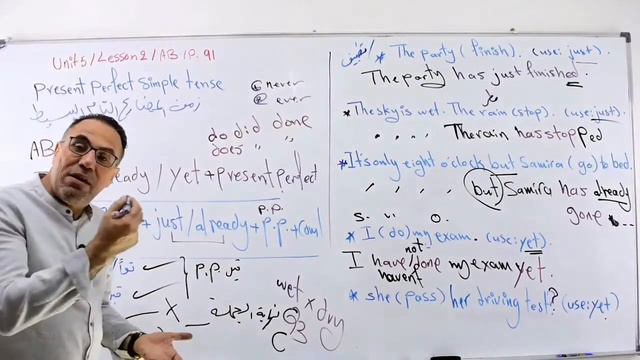 Unit 5 / Lesson 2 / AB / P. 91
Present Perfect Simple tense
زمن المضارع التام البسيط
① never
② ever
do did done
does " "
AB
ready / Yet + present perfect
p.p.
+ just / already + p.p. + Coml
} p.p.
X
نهاية الجملة
wet x dry
* The party (finish). (use: just).
The party has just finished
* The sky is wet. The rain (stop). (use: just).
" " " " The rain has stopped
* It's only eight o'clock but Samira (go) to bed.
" " " " but Samira has already
gone " ...
S. v. O.
* I (do) my exam. (use: yet).
not
I have / done my exam yet.
havent
* she (pass) her driving test? (use: yet)